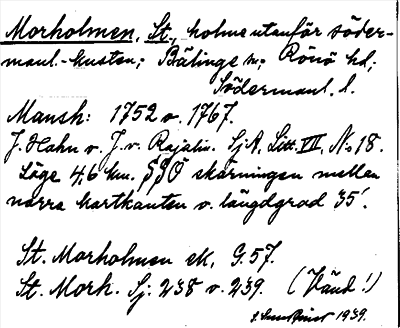 Morholmen, St., holme utanför söder-
manl.-kusten; Bälinge sn; Rönö hd;
Södermanl. l.
Mansk: 1752 o. 1767.
J. Hahn o. J. v. Rajalin. SjA, Litt. VII, No 18.
Läge 4,6 km. SSO skärningen mellan
norra kartkanten o. längdgrad 35'.
St. Morholmen ek. G.57.
St. Morh. Sj: 238 o. 239. (Vänd!)
1939.